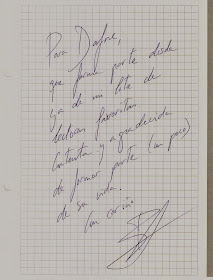 Para Dafne,
que forma parte desde
ya de mi lote de
lectoras favoritas
Contenta y agradecida
de formar parte (un poco)
de su vida.
Con cariño